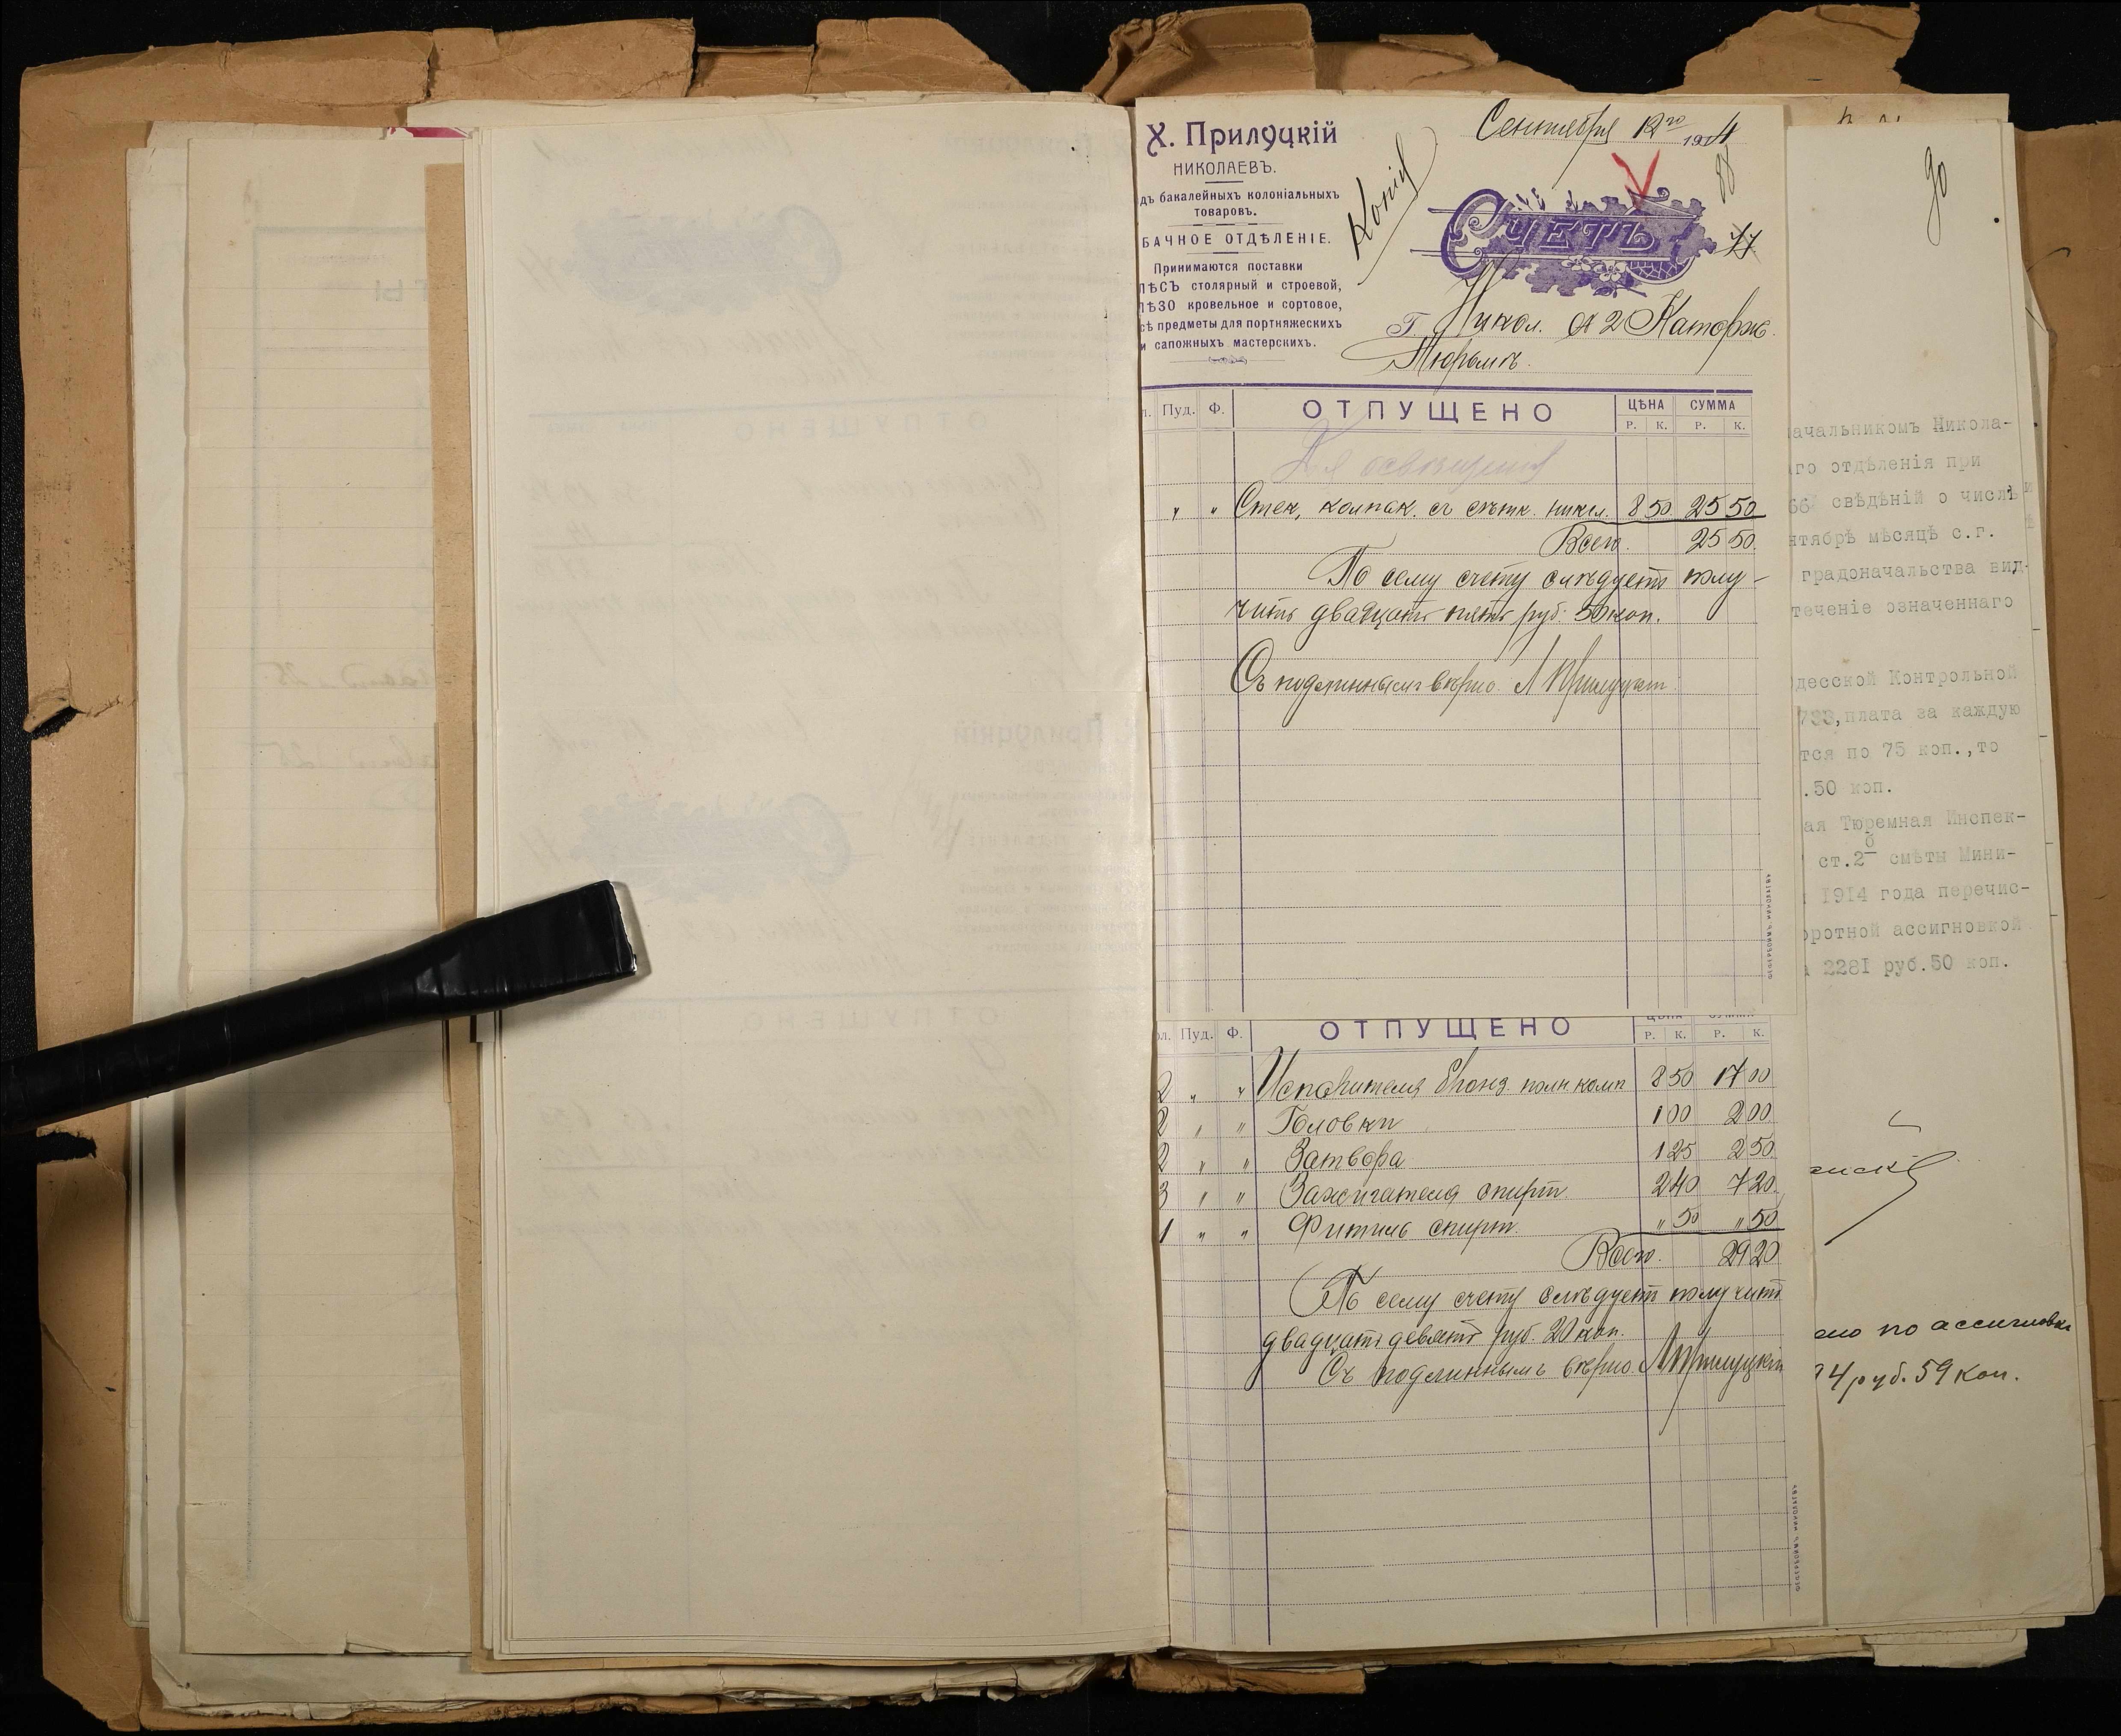 Х. Прилуцкій
НИКОЛАЕВЪ.
дъ бакалейныхъ колоніальныхъ
товаровъ.
БАЧНОЕ ОТДѢЛЕНІЕ.
Принимаются поставки
ЛѢСЪ столярный и строевой,
ЛѢЗО кровельное и сортовое,
сѣ предметы для портняжескихъ
и сапожныхъ мастерскихъ.
Копія
Сентября 12го 1914
88
СЧЕТЪ
77
Г. Никол. Каторж.
Тюрьмѣ.
Пуд. Ф. ОТПУЩЕНО ЦѢНА СУММА
Р. К. Р. К.
Для освѣщенія
" " Стек. колпак. съ сѣтк. никел. 8 50 25 50
Всего. 25 50
По сему счету слѣдуетъ полу-
чить двадцать пять руб. 50 коп.
Съ подлиннымъ вѣрно. Л Прилуцкій
ФЕФЕРБОИМЪ НИКОЛАЕВЪ
ОТПУЩЕНО ЦѢНА СУММА
ол. Пуд. Ф. Р. К. Р. К.
2 " " Испарителя бронз. полн. комп 8 50 17 00
2 " " Головки 1 00 2 00
2 " " Затвора 1 25 2 50
3 " " Зажигателя спирт. 2 40 7 20
1 " " Фитиль спирт. " 50 " 50
Всего. 29 20
По сему счету слѣдуетъ получить
двадцать девять руб. 20 коп.
Съ подлиннымъ вѣрно. Л Прилуцкій
ФЕФЕРБОИМЪ НИКОЛАЕВЪ
90
ачальникомъ Никола-
го отдѣленія при
66 свѣдѣній о числѣ
нтябрѣ мѣсяцѣ с.г.
градоначальства вид-
теченіе означеннаго
десской Контрольной
733, плата за каждую
тся по 75 коп., то
.50 коп.
ая Тюремная Инспек-
ст.2б смѣты Мини-
1914 года перечис-
оротной ассигновкой
2281 руб.50 коп.
ено по ассигновкѣ
4 руб. 59 коп.